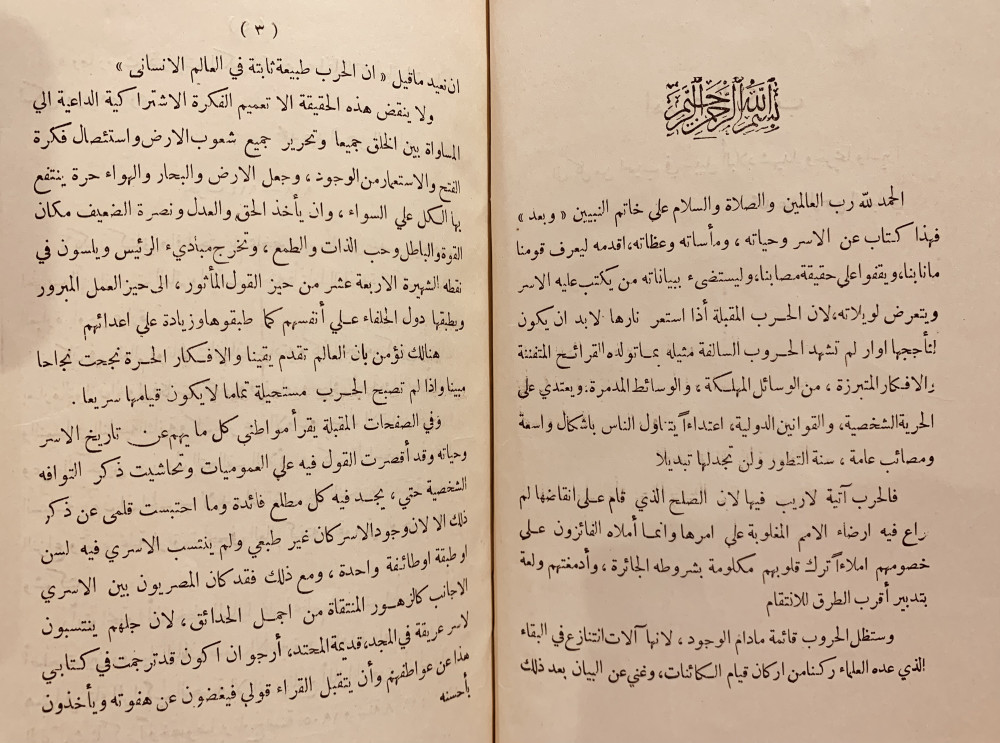 بسم الله الرحمن الرحيم
الحمد لله رب العالمين والصلاة والسلام علي خاتم النبيين « وبعد »
فهذا كتاب عن الاسر وحياته ، ومأساته وعظاته، اقدمه ليعرف قومنا
مانابنا، ويقفوا علي حقيقة مصابنا، وليستضىء ببياناته من يكتب عليه الاسر
ويتعرض لويلاته، لان الحرب المقبلة أذا استعر نارها لابد ان يكون
لتأججها اوار لم تشهد الحروب السالفة مثيله بما تولده القرائح المتفننة
والافكار المتبرزة ، من الوسائل المهلكة ، والوسائط المدمرة. ويعتدي علي
الحرية الشخصية، والقوانين الدولية، اعتداءاً يتناول الناس باشكال واسعة
ومصائب عامة ، سنة التطور ولن تجد لها تبديلا
فالحرب آتية لاريب فيها لان الصلح الذي قام على انقاضها لم
يراع فيه ارضاء الامم المغلوبة علي امرها وانما أملاه الفائزون على
خصومهم املاءاً ترك قلوبهم مكلومة بشروطه الجائرة ، وأدمغتهم ولعة
بتدبير أقرب الطرق للانتقام
وستظل الحروب قائمة مادام الوجود ، لانها آلات انتنازع في البقاء
الذي عده العلماء ركنا من اركان قيام الكائنات، وغني عن البيان بعد ذلك
( ٣ )
ان نعيد ماقيل « ان الحرب طبيعة ثابتة في العالم الانسانى »
ولا ينقض هذه الحقيقة الا تعميم الفكرة الاشتراكية الداعية الي
المساواة بين الخلق جميعا وتحرير جميع شعوب الارض واستئصال فكرة
الفتح والاستعمار من الوجود ، وجعل الارض والبحار والهواء حرة ينتفع
بها الكل علي السواء ، وان يأخذ الحق والعدل ونصرة الضعيف مكان
القوة والباطل وحب الذات والطمع ، وتخرج مباديء الرئيس ويلسون في
نقطه الشهيرة الاربعة عشر من حيز القول المأثور ، الى حيز العمل المبرور
ويطبقها دول الحلفاء علي أنفسهم كما طبقوها وزيادة علي اعدائهم
هنالك نؤمن بان العالم تقدم يقينا والافكار الحرة نجحت نجاحا
مبينا واذا لم تصبح الحرب مستحيلة تماما لايكون قيامها سريعا .
وفي الصفحات المقبلة يقرأ مواطني كل ما يهم عن تاريخ الاسر
وحياته وقد أقصرت القول فيه علي العموميات وتحاشيت ذكر التوافه
الشخصية حتي ، يجد فيه كل مطلع فائدة وما احتبست قلمى عن ذكر
ذلك الا لان وجود الاسر كان غير طبعي ولم ينتسب الاسري فيه لسن
او طبقة او طائفة واحدة ، ومع ذلك فقد كان المصريون بين الاسري
الاجانب كالزهور المنتقاة من اجمل الحدائق ، لان جلهم ينتسبون
لاسر عريقة في المجد، قديمة المحتد، أرجو ان اكون قد ترجمت في كتابي
هذا عن عواطفهم وأن يتقبل القراء قولي فيغضون عن هفوته ويأخذون
بأحسنه